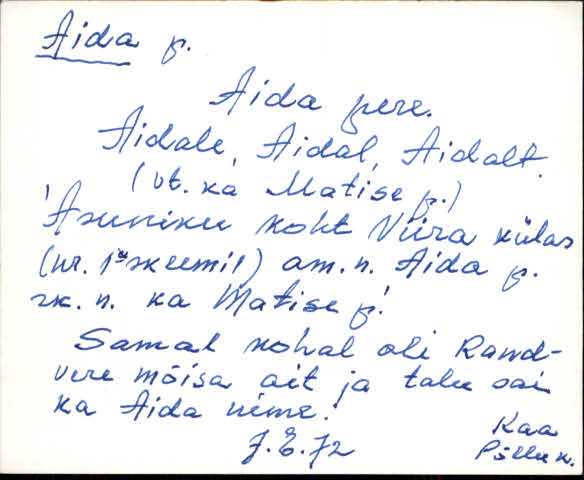 Aida p.
Aida pere.
Aidale, Aidal, Aidalt.
(vt. ka Matise p.)
'Asuniku koht Viira külas
(nr. 1 skeemil) am. n. Aida p.
rk. n. ka Matise p.'
Samal kohal oli Rand-
vere mõisa ait ja talu sai
ka Aida nime.'
J. E. 72
Kaa
Põllu k.